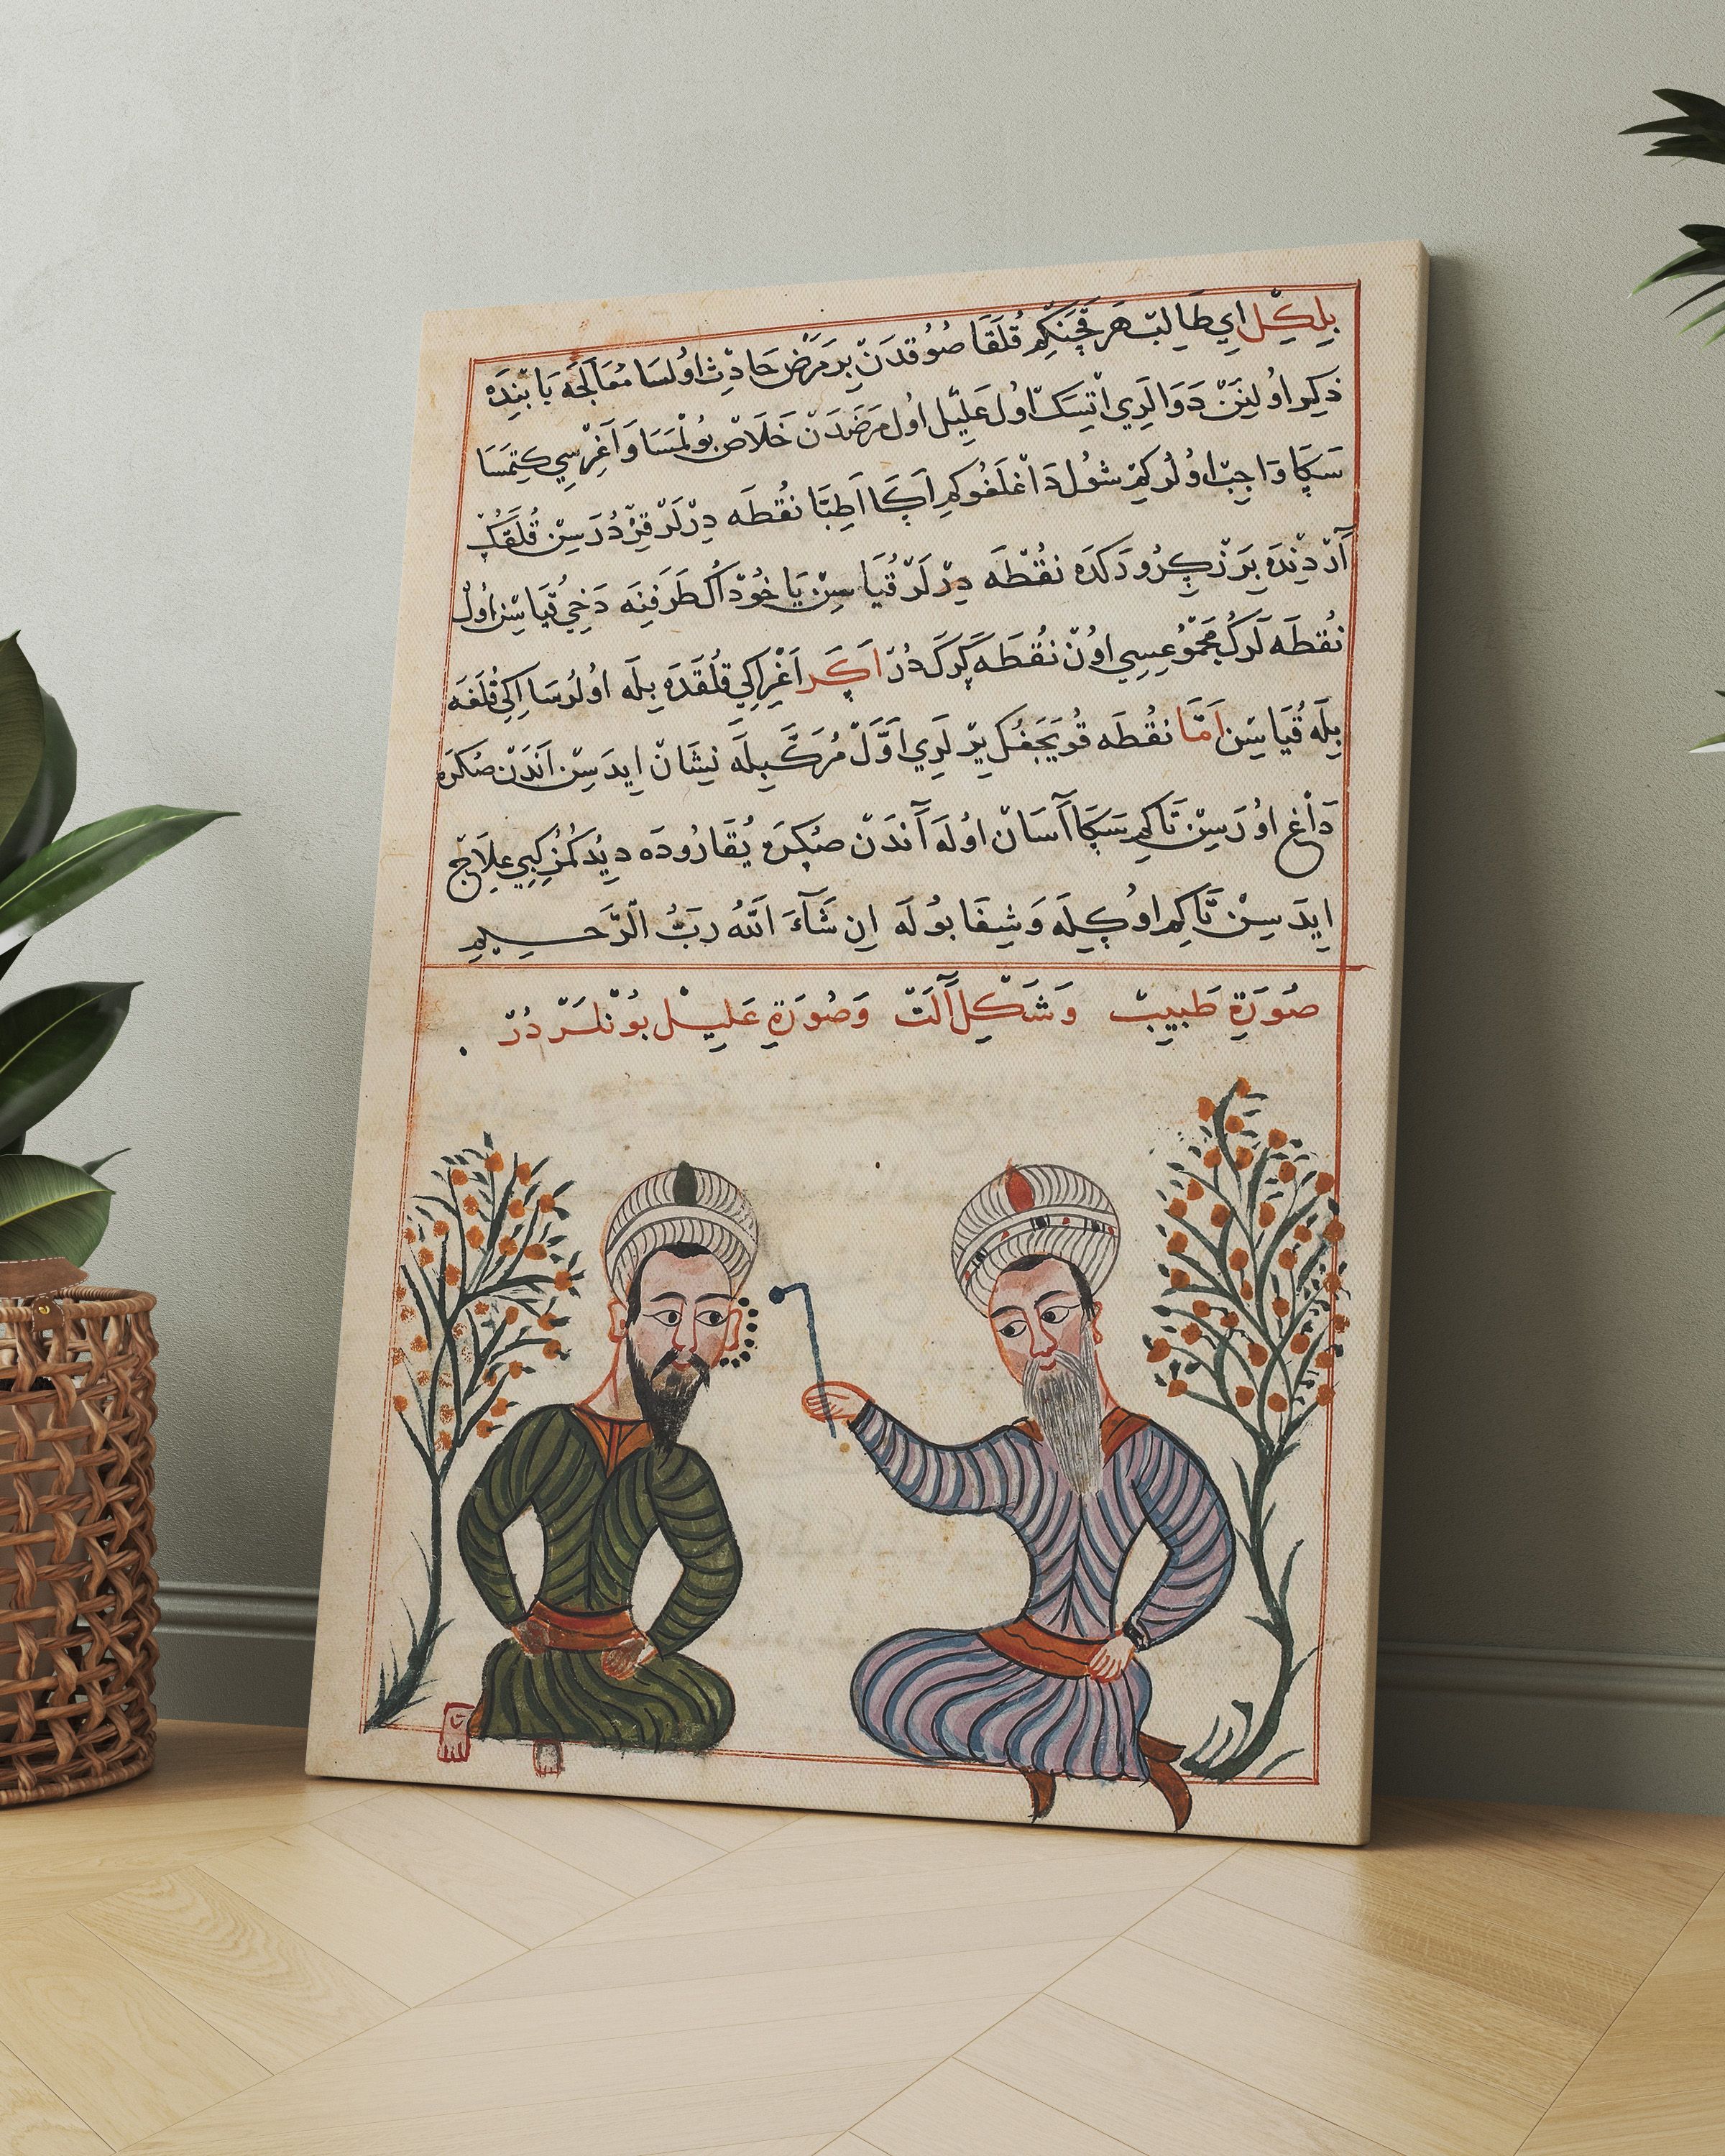 بِلكِلْ اَيِ طَالِبْ هَر قَچَنكِمْ قُلَقَا صُوُقدَنْ بِرمَرَضْ حَادِثْ اوُلسَا مُعَالَجَه بَابِنْدَه
ذِكِر اوُلِنَنْ دَوَالَرِي اتِسَكْ اوُل عَلِيْل اوُل مَرَضدَنْ خَلَاصْ بوُلْمَسَا وَاَغْرِسِي كِتمَسَا
سَكَا وَاجِبْ اوُلُركِمْ شوُل دَاغلَغُوكِمْ اَكَا اَطِبَّا نقُطَه دِرْلَرْ قِزْدُرَسِنْ قُلَقكْ
آرْدِنْدَه بَرْزكِرُودَكدَه نقُطْطَه دِرْلَرْ قُيَاسِنْ يَا خُوْد اُكْ طَرَفِنَه دَخِي قُيَاسِنْ اوُل
نُقطَه لَركْ مَجمُوعِسِي اوُنْ نقُطَه كَرَكدُرْ اَكَر اَغْرِ اِكِي قُلَقدَه بِلَه اوُلُرسَا اِكِي قُلَغَه
بِلَه قُيَاسِن اَمَّا نقُطَه قوُيَجَغكْ يِرلَرِي اَوَّلْ مُرَكَّبِلَه نِشَانْ ايدَسِنْ اَندَنْ صُكرَه
دَاغ اوُرَسِنْ تَاكِمْ سَكَا آسَانْ اوُلَه آندَنْ صُكرَه يُقَارُودَه دِيدُكمُزْكِبِي عِلَاجْ
ايدَسِنْ تَاكِمْ اوُكِلَه وَشِفَا بوُلَه اِن شَآءَ اَللّٰهُ رَبُّ الْرَّحِيمِ
صُورَةِ طَبِيبْ وَشَكْلِ آلَتْ وَصُورَةِ عَلِيْلْ بوُنلَرْدُرْ